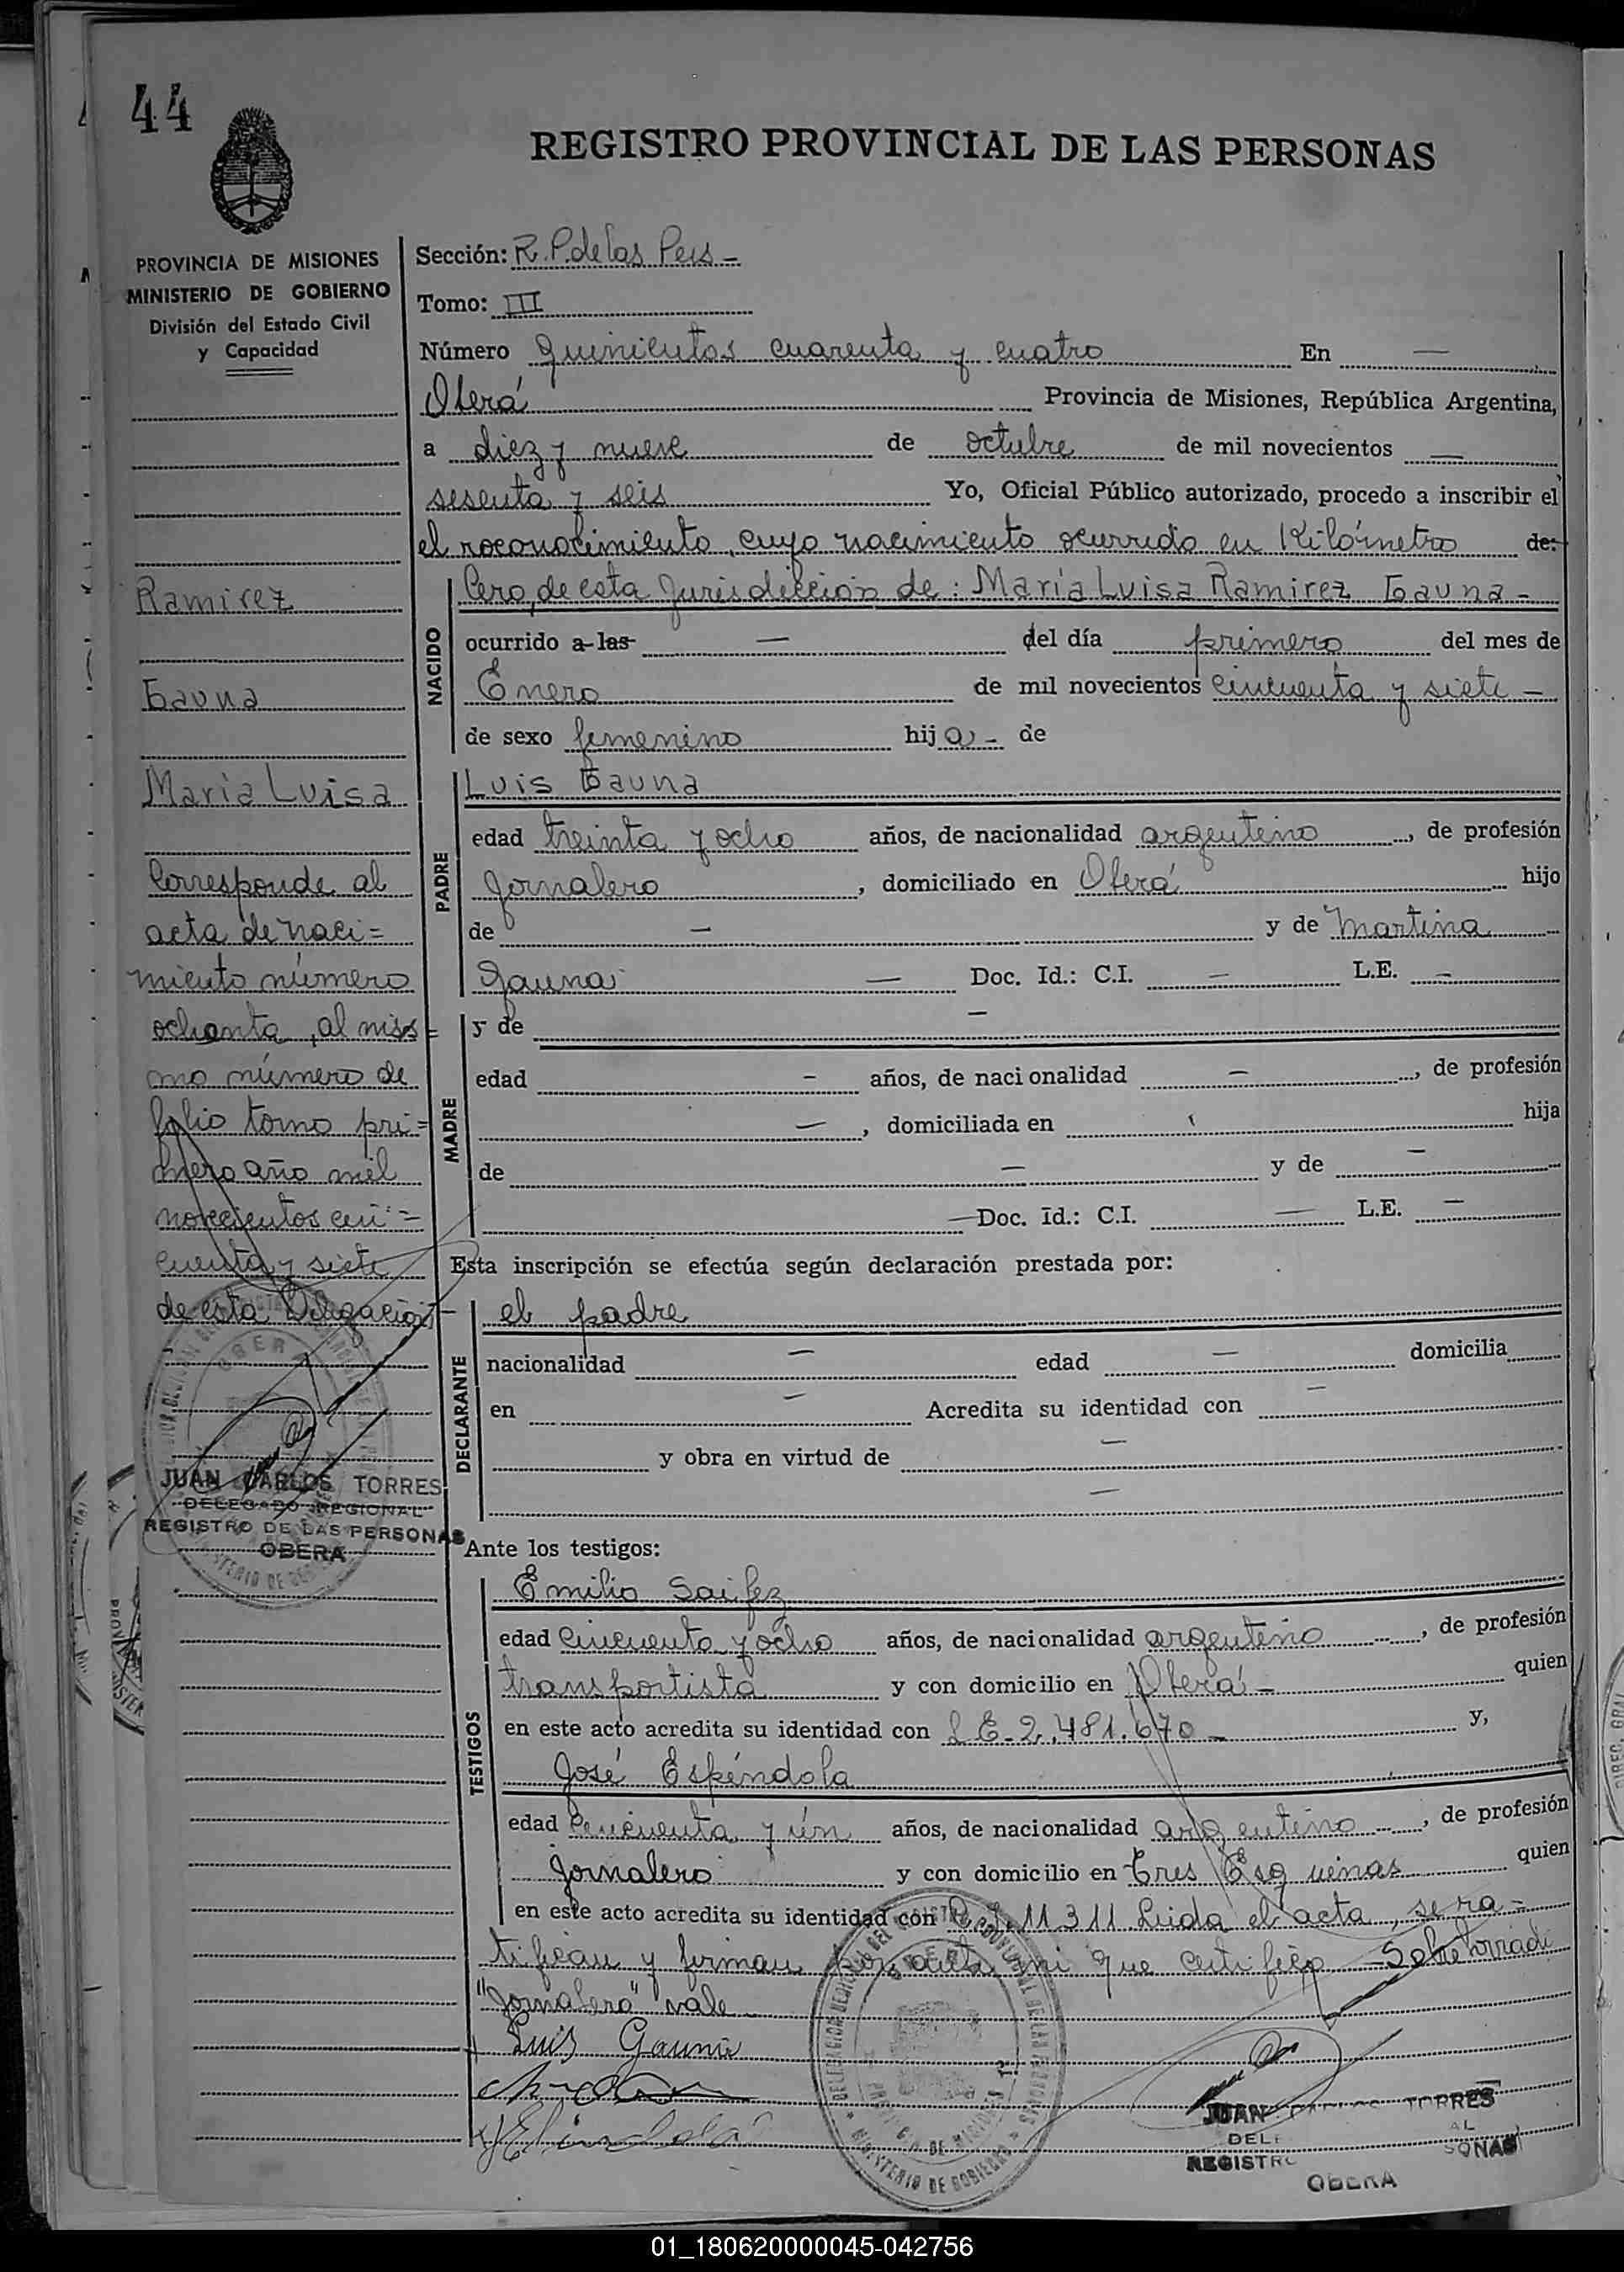 44
REGISTRO PROVINCIAL DE LAS PERSONAS
PROVINCIA DE MISIONES
MINISTERIO DE GOBIERNO
División del Estado Civil
y Capacidad
Ramirez
Gauna
María Luisa
Corresponde al
acta de naci=
miento número
ochenta, al mis=
mo número de
folio tomo pri=
mero año mil
novecientos cin=
cuenta y siete
de esta Delegación-
OBERA
JUAN CARLOS TORRES
DELEGADO REGIONAL
REGISTRO DE LAS PERSONAS
OBERA
Sección: R. P. de las Pers -
Tomo: III
Número quinientos cuarenta y cuatro En —
Oberá Provincia de Misiones, República Argentina,
a diez y nueve de octubre de mil novecientos —
sesenta y seis Yo, Oficial Público autorizado, procedo a inscribir el
el reconocimiento, cuyo nacimiento ocurrido en Kilómetro de:
NACIDO
Cero, de esta Jurisdicción de: María Luisa Ramirez Gauna -
ocurrido a las — del día primero del mes de
Enero de mil novecientos cincuenta y siete -
de sexo femenino hija - de
PADRE
Luis Gauna
edad treinta y ocho años, de nacionalidad argentino, de profesión
Jornalero, domiciliado en Oberá hijo
de — y de Martina
Gauna — Doc. Id.: C.I. — L.E. —
MADRE
y de —
edad — años, de nacionalidad —, de profesión
—, domiciliada en hija
de — y de —
— Doc. Id.: C.I. — L.E. —
Esta inscripción se efectúa según declaración prestada por:
DECLARANTE
el padre
nacionalidad — edad — domicilia
en — Acredita su identidad con —
y obra en virtud de —
—
Ante los testigos:
TESTIGOS
Emilio Saifez
edad cincuenta y ocho años, de nacionalidad argentino, de profesión
transportista y con domicilio en Oberá - quien
en este acto acredita su identidad con L E - 2.481.670 - y,
José Espíndola
edad cincuenta y ún años, de nacionalidad argentino, de profesión
Jornalero y con domicilio en Tres Esquinas quien
en este acto acredita su identidad con 11311 Leida el acta, se ra=
tifican y firman por ante mi que certifico - Sobreborrado
"Jornalero" vale
Luis Gauna
JUAN CARLOS TORRES
DELE AL
REGISTRO SONAS
OBERA
MINISTERIO DE GOBIERNO
01_180620000045-042756